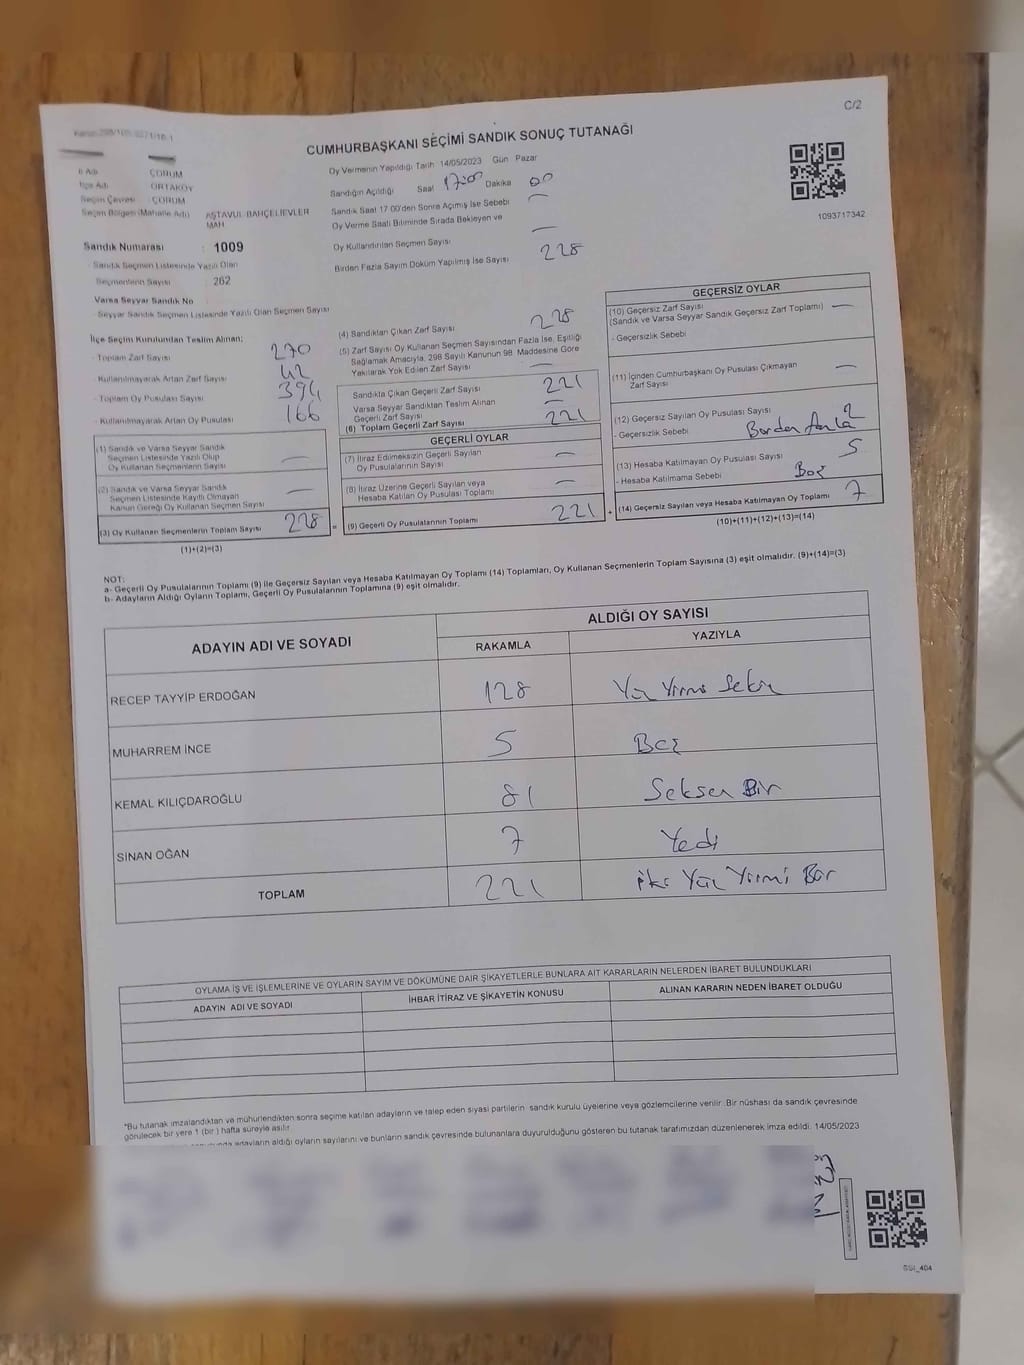 C/2
CUMHURBAŞKANI SEÇİMİ SANDIK SONUÇ TUTANAĞI
İl Adı ÇORUM
İlçe Adı ORTAKÖY
Seçim Çevresi : ÇORUM
Seçim Bölgesi (Mahalle Adı) AŞTAVUL BAHÇELİEVLER MAH
Sandık Numarası : 1009
- Sandık Seçmen Listesinde Yazılı Olan
Seçmenlerin Sayısı : 262
Varsa Seyyar Sandık No
- Seyyar Sandık Seçmen Listesinde Yazılı Olan Seçmen Sayısı
Oy Vermenin Yapıldığı Tarih 14/05/2023 Gün Pazar
Sandığın Açıldığı Saat 17:00 Dakika 00
Sandık Saat 17:00'den Sonra Açımış İse Sebebi —
Oy Verme Saati Bitiminde Sırada Bekleyen ve
Oy Kullandırılan Seçmen Sayısı —
Birden Fazla Sayım Döküm Yapılmış İse Sayısı 228
1093717342
İlçe Seçim Kurulundan Teslim Alınan:
- Toplam Zarf Sayısı 270
- Kullanılmayarak Artan Zarf Sayısı 42
- Toplam Oy Pusulası Sayısı 394
- Kullanılmayarak Artan Oy Pusulası 166
(1) Sandık ve Varsa Seyyar Sandık
Seçmen Listesinde Yazılı Olup
Oy Kullanan Seçmenlerin Sayısı —
(2) Sandık ve Varsa Seyyar Sandık
Seçmen Listesinde Kayıtlı Olmayan
Kanun Gereği Oy Kullanan Seçmen Sayısı —
(3) Oy Kullanan Seçmenlerin Toplam Sayısı 228
(1)+(2)=(3)
(4) Sandıktan Çıkan Zarf Sayısı 228
(5) Zarf Sayısı Oy Kullanan Seçmen Sayısından Fazla İse, Eşitliği
Sağlamak Amacıyla, 298 Sayılı Kanunun 98. Maddesine Göre
Yakılarak Yok Edilen Zarf Sayısı —
Sandıkta Çıkan Geçerli Zarf Sayısı 221
Varsa Seyyar Sandıktan Teslim Alınan
Geçerli Zarf Sayısı —
(6) Toplam Geçerli Zarf Sayısı 221
GEÇERLİ OYLAR
(7) İtiraz Edilmeksizin Geçerli Sayılan
Oy Pusulalarının Sayısı —
(8) İtiraz Üzerine Geçerli Sayılan veya
Hesaba Katılan Oy Pusulası Toplamı —
= (9) Geçerli Oy Pusulalarının Toplamı 221 +
GEÇERSİZ OYLAR
(10) Geçersiz Zarf Sayısı
(Sandık ve Varsa Seyyar Sandık Geçersiz Zarf Toplamı) —
- Geçersizlik Sebebi
(11) İçinden Cumhurbaşkanı Oy Pusulası Çıkmayan
Zarf Sayısı —
(12) Geçersiz Sayılan Oy Pusulası Sayısı 2
- Geçersizlik Sebebi
(13) Hesaba Katılmayan Oy Pusulası Sayısı 5
- Hesaba Katılmama Sebebi Boş
(14) Geçersiz Sayılan veya Hesaba Katılmayan Oy Toplamı 7
(10)+(11)+(12)+(13)=(14)
NOT:
a- Geçerli Oy Pusulalarının Toplamı (9) ile Geçersiz Sayılan veya Hesaba Katılmayan Oy Toplamı (14) Toplamları, Oy Kullanan Seçmenlerin Toplam Sayısına (3) eşit olmalıdır. (9)+(14)=(3)
b- Adayların Aldığı Oyların Toplamı, Geçerli Oy Pusulalarının Toplamına (9) eşit olmalıdır.
ADAYIN ADI VE SOYADI ALDIĞI OY SAYISI
RAKAMLA YAZIYLA
RECEP TAYYİP ERDOĞAN 128 Yüz Yirmi Sekiz
MUHARREM İNCE 5 Beş
KEMAL KILIÇDAROĞLU 81 Seksen Bir
SİNAN OĞAN 7 Yedi
TOPLAM 221 iki Yüz Yirmi Bir
OYLAMA İŞ VE İŞLEMLERİNE VE OYLARIN SAYIM VE DÖKÜMÜNE DAİR ŞİKAYETLERLE BUNLARA AİT KARARLARIN NELERDEN İBARET BULUNDUKLARI
ADAYIN ADI VE SOYADI İHBAR İTİRAZ VE ŞİKAYETİN KONUSU ALINAN KARARIN NEDEN İBARET OLDUĞU
*Bu tutanak imzalandıktan ve mühürlendikten sonra seçime katılan adayların ve talep eden siyasi partilerin sandık kurulu üyelerine veya gözlemcilerine verilir. Bir nüshası da sandık çevresinde
görülecek bir yere 1 (bir) hafta süreyle asılır.
adayların aldığı oyların sayılarını ve bunların sandık çevresinde bulunanlara duyurulduğunu gösteren bu tutanak tarafımızdan düzenlenerek imza edildi. 14/05/2023